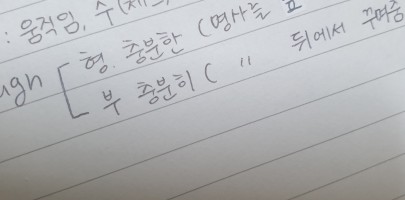 : 움직임, 수
ugh [ 형. 충분한 (명사를
부 충분히 ( " 뒤에서 꾸며줌